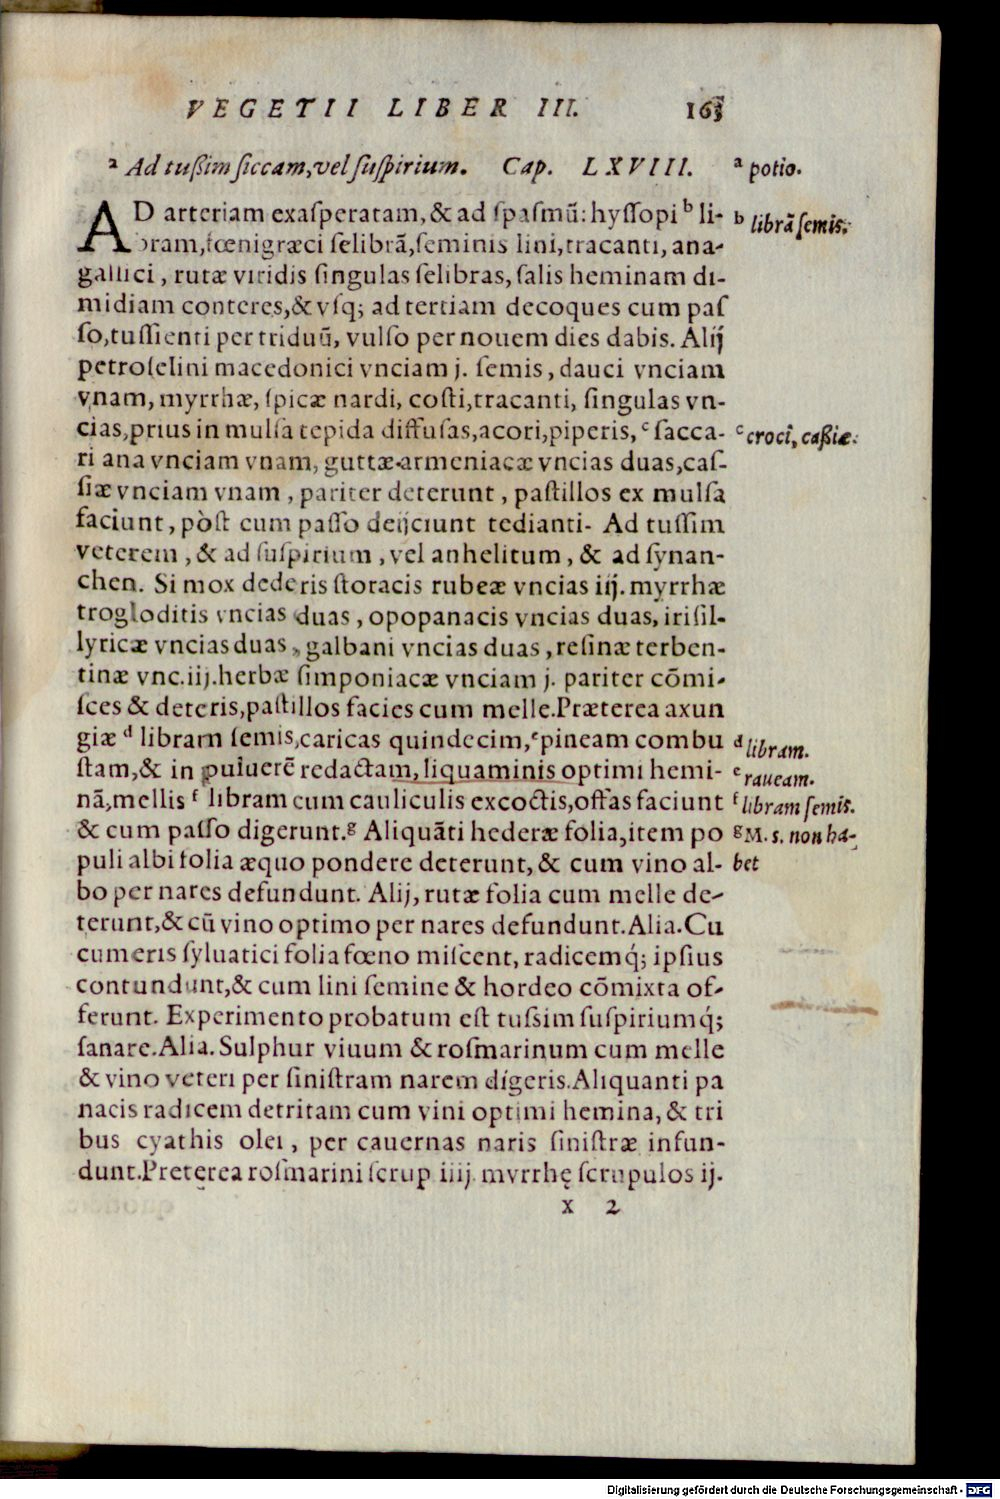 VEGETII LIBER III. 163
ᵃ Ad tußim ſiccam, vel ſuſpirium. Cap. LXVIII.
ᵃ potio.
AD arteriam exaſperatam, & ad ſpaſmū: hyſſopi ᵇ li-
ᵇ librā ſemis.
bram, fœnigræci ſelibrā, ſeminis lini, tracanti, ana-
gallici, rutæ viridis ſingulas ſelibras, ſalis heminam di-
midiam conteres, & vſq; ad tertiam decoques cum paſ
ſo, tuſſienti per triduū, vulſo per nouem dies dabis. Alij
petroſelini macedonici vnciam j. ſemis, dauci vnciam
vnam, myrrhæ, ſpicæ nardi, coſti, tracanti, ſingulas vn-
cias, prius in mulſa tepida diffuſas, acori, piperis, ᶜ ſacca-
ᶜ croci, caßiæ.
ri ana vnciam vnam, guttæ armeniacæ vncias duas, caſ-
ſiæ vnciam vnam, pariter deterunt, paſtillos ex mulſa
faciunt, pòſt cum paſſo deijciunt tedianti- Ad tuſſim
veterem, & ad ſuſpirium, vel anhelitum, & ad ſynan-
chen. Si mox dederis ſtoracis rubeæ vncias iij. myrrhæ
trogloditis vncias duas, opopanacis vncias duas, iriſil-
lyricæ vncias duas, galbani vncias duas, reſinæ terben-
tinæ vnc. iij. herbæ ſimponiacæ vnciam j. pariter cōmi-
ſces & deteris, paſtillos facies cum melle. Præterea axun
giæ ᵈ libram ſemis, caricas quindecim, ᵉ pineam combu
ᵈ libram.
ſtam, & in puluerē redactam, liquaminis optimi hemi-
ᵉ raueam.
nā, mellis ᶠ libram cum cauliculis excoctis, offas faciunt
ᶠ libram ſemis.
& cum paſſo digerunt. ᵍ Aliquāti hederæ folia, item po
ᵍ M. s. non ha-
puli albi folia æquo pondere deterunt, & cum vino al-
bet
bo per nares defundunt. Alij, rutæ folia cum melle de-
terunt, & cū vino optimo per nares defundunt. Alia. Cu
cumeris ſyluatici folia fœno miſcent, radicemq́; ipſius
contundunt, & cum lini ſemine & hordeo cōmixta of-
ferunt. Experimento probatum eſt tuſsim ſuſpiriumq́;
ſanare. Alia. Sulphur viuum & roſmarinum cum melle
& vino veteri per ſiniſtram narem dígeris. Aliquanti pa
nacis radicem detritam cum vini optimi hemina, & tri
bus cyathis olei, per cauernas naris ſiniſtræ infun-
dunt. Preterea roſmarini ſcrup iiij. myrrhę ſcrupulos ij.
x 2
Digitalisierung gefördert durch die Deutsche Forschungsgemeinschaft - DFG